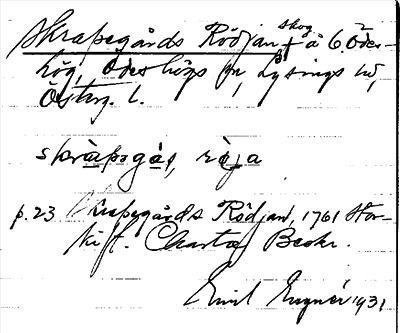 Skrapegårds Rödjan, skog
å 6² Ödes-
hög, Ödeshögs sn, Lysings hd,
Österg. l.
skràpəgås, rö̀ja
p. 23 Skrapegårds Rödjan, 1761 Stor-
skift. Charta o Beskr.
Emil Eugnér 1931